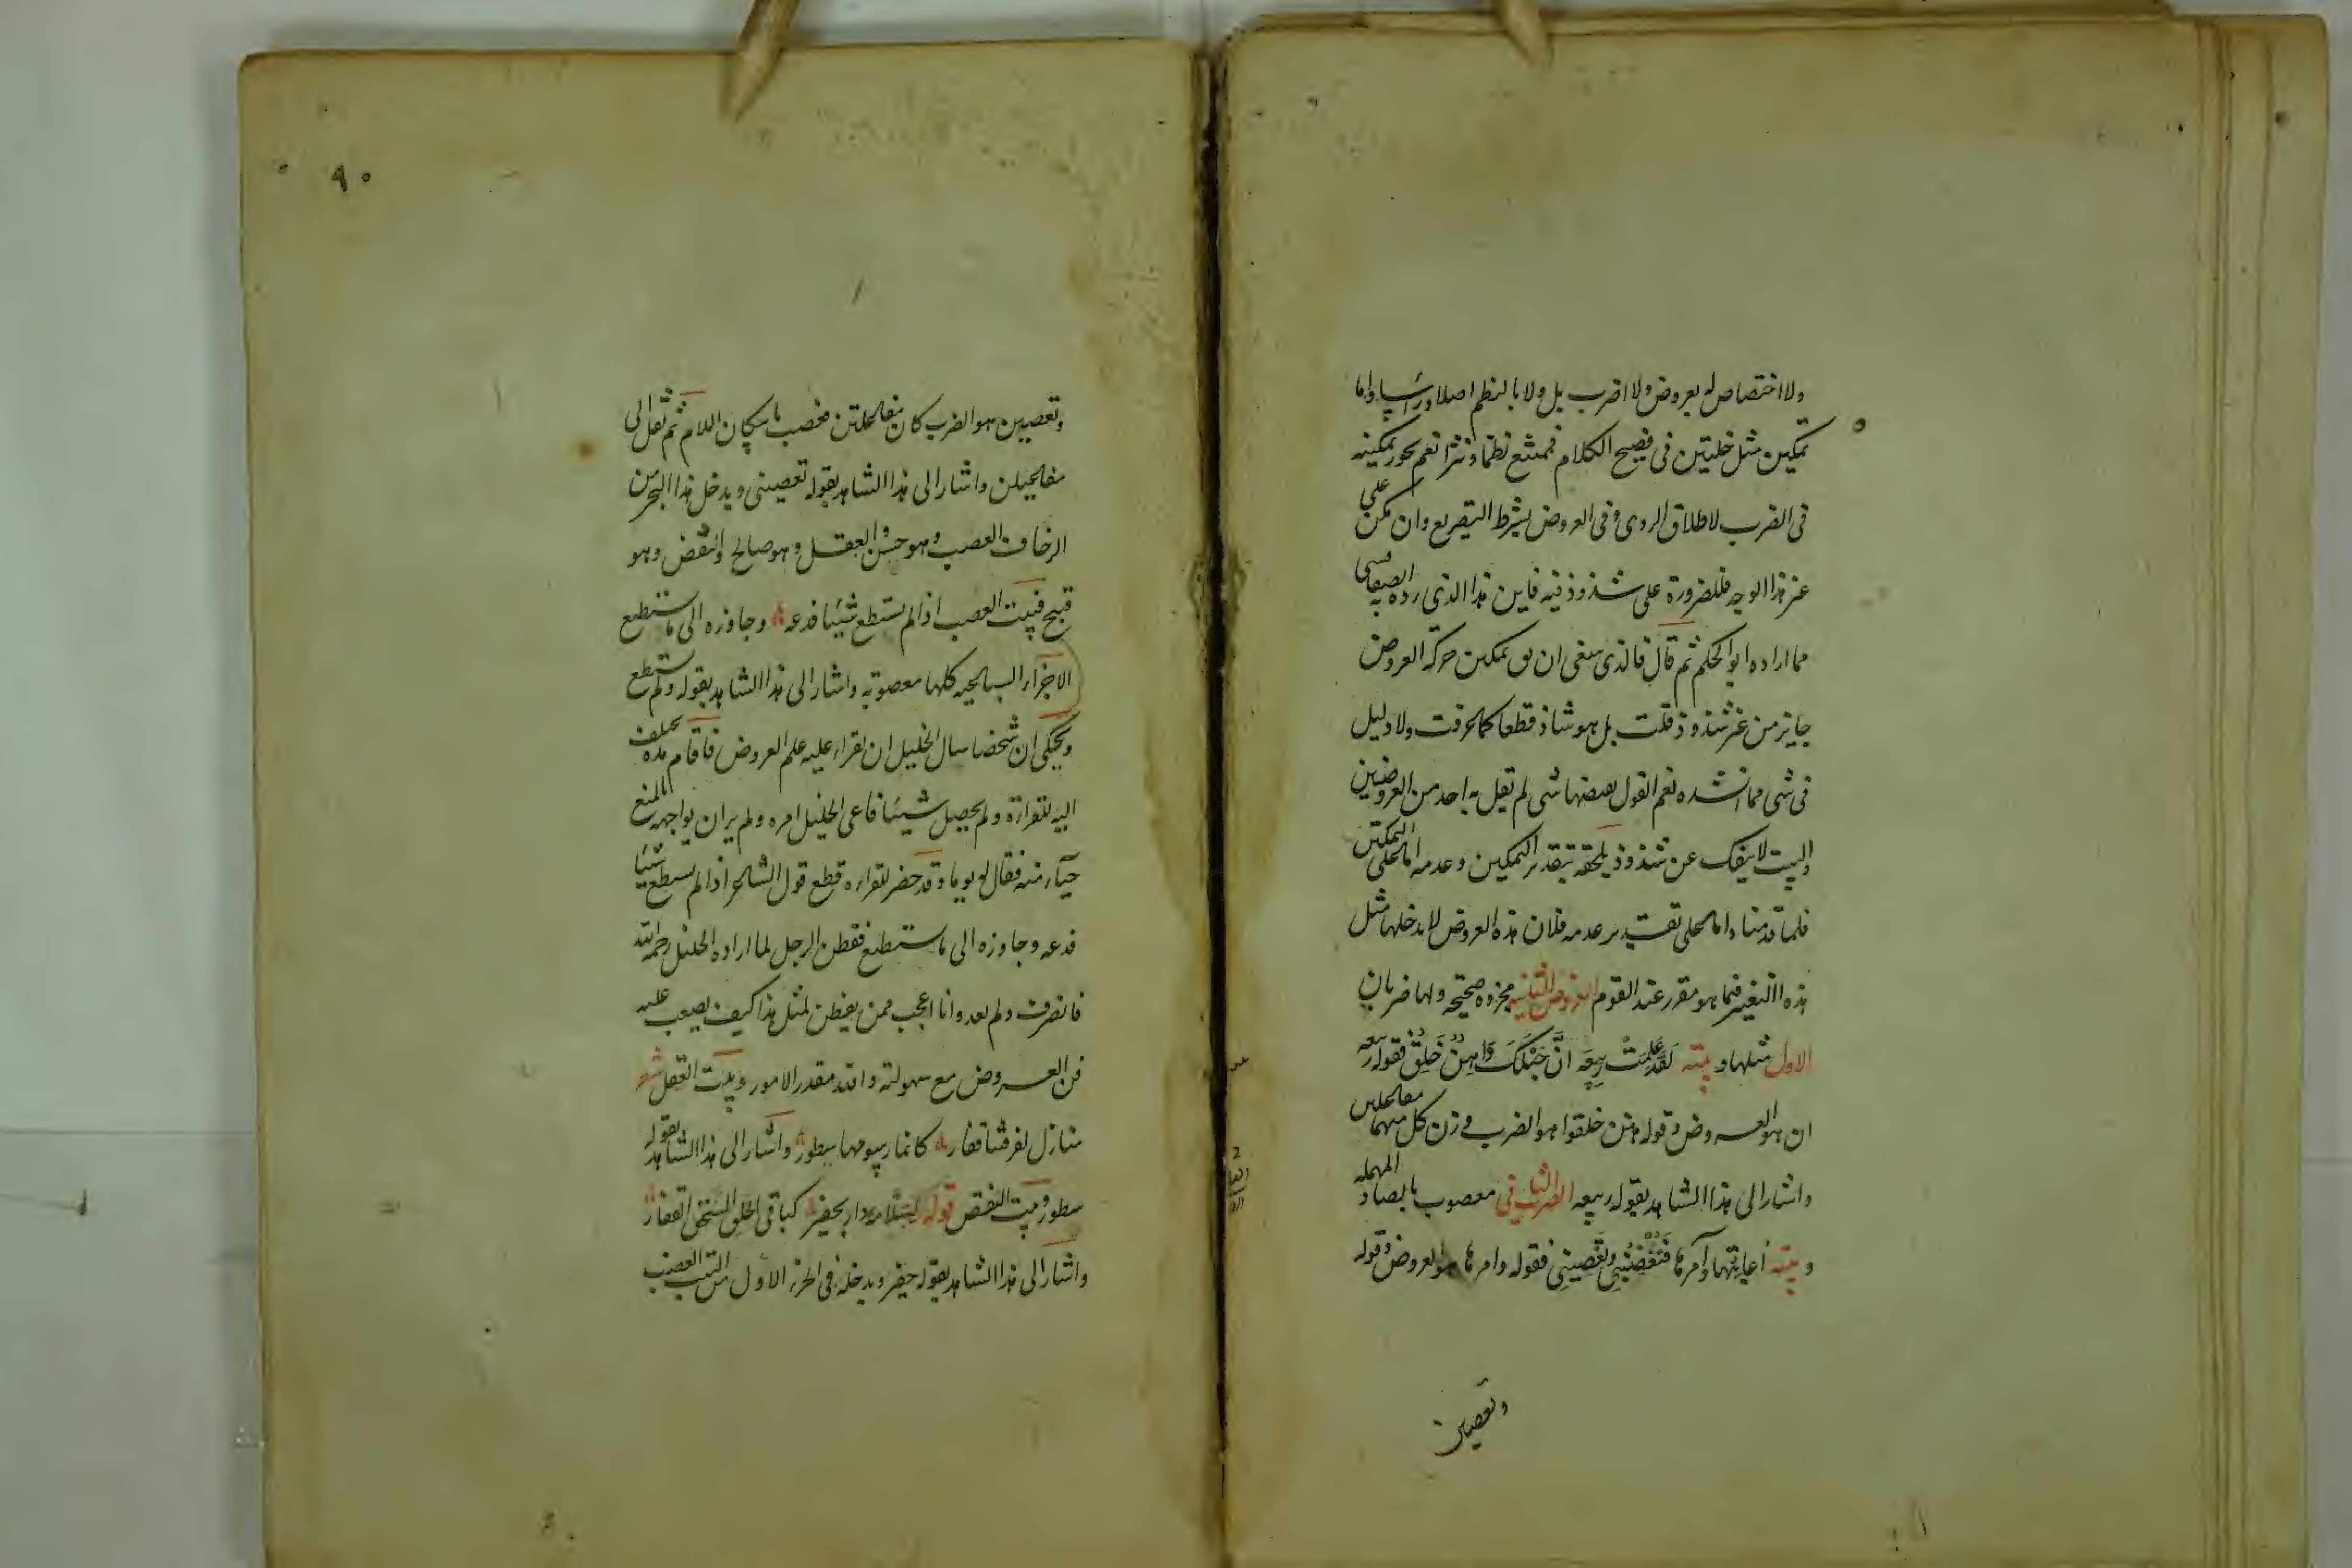 ولا اختصاص له بعروض ولا اضرب بل ولا بالنظم اصلا وراسا واما
تمكين مثل خلتين في فصيح الكلام فممتنع نظما ونثرا نعم يجوز تمكينه
في الضرب لاطلاق الروى وفى العروض بشرط التصريع وان مكن على
غير هذا الوجه فللضرورة على شذوذ فيه فاين هذا الذى رده به الصفاقسى
مما اراده ابو الحكم ثم قال فالذى ينبغى ان تمكين حركة العروض
جايز من غير شذوذ قلت بل هو شاذ قطعا كما عرفت ولا دليل
فى شى مما انشده نعم القول بعضها شى لم يقل به احد من العروضيين
والبيت لا ينفك عن شذوذ يلحقه بتقدير التمكين وعدمه اما على التمكين
فلما قدمنا واما على تقدير عدمه فلان هذه العروض لا يدخلها مثل
هذا التغيير فيما هو مقرر عند القوم العروض الثانيه مجزوه صحيحه ولها ضربان
الاول مثلها وبيته لَقَدْ عَلِمَتْ رَبِيعَة اَنَّ حَبْلَكَ وَاهِنٌ خَلِقٌ فقوله ربيعه
ان هو العروض وقوله هنن خلقوا هو الضرب وزن كل منهما مفاعلتن
واشار الى هذا الشاهد بقوله ربيعه الضرب الثانى معصوب بالصاد المهمله
وبيته اُعاتِبُها وآمرها فَتُغْضِبُنِي وتَعْصِينِي فقوله وامرها هو العروض وقوله
وتعصينى
٩٠
وتعصينى هو الضرب كان مفاعلتن فعصب باسكان اللام ثم نقل الى
مفاعيلن واشار الى هذا الشاهد بقوله تعصينى ويدخل هذا البحر من
الزحاف العصب وهو حسن والعقل وهو صالح والنقض وهو
قبيح فبيت العصب اذا لم تستطع شيئا فدعه وجاوزه الى ما تستطيع
الاجزاء السباعيه كلها معصوبه واشار الى هذا الشاهد بقوله ولم تستطع
ويحكى ان شخصا سال الخليل ان يقراء عليه علم العروض فاقام مده يختلف
اليه للقراءة ولم يحصل شيئا فاعى الخليل امره ولم ير ان يواجهه بالمنع
حياء منه فقال له يوما وقد حضر للقراءه قطع قول الشاعر اذا لم تستطع شيئا
فدعه وجاوزه الى ما تستطيع ففطن الرجل لما اراده الخليل رحمه الله
فانصرف ولم يعد وانا اعجب ممن يفطن لمثل هذا كيف يصعب عليه
فن العروض مع سهولته والله مقدر الامور وبيت العقل شعر
منازل لفرتنا قفار كانما رسومها سطور واشار الى هذا الشاهد بقوله
سطور وبيت النقص قوله لسلامه دار بحفير كباقى الخلق السحق قفار
واشار الى هذا الشاهد بقوله حفير ويدخله فى الجزء الاول من البيت العضب